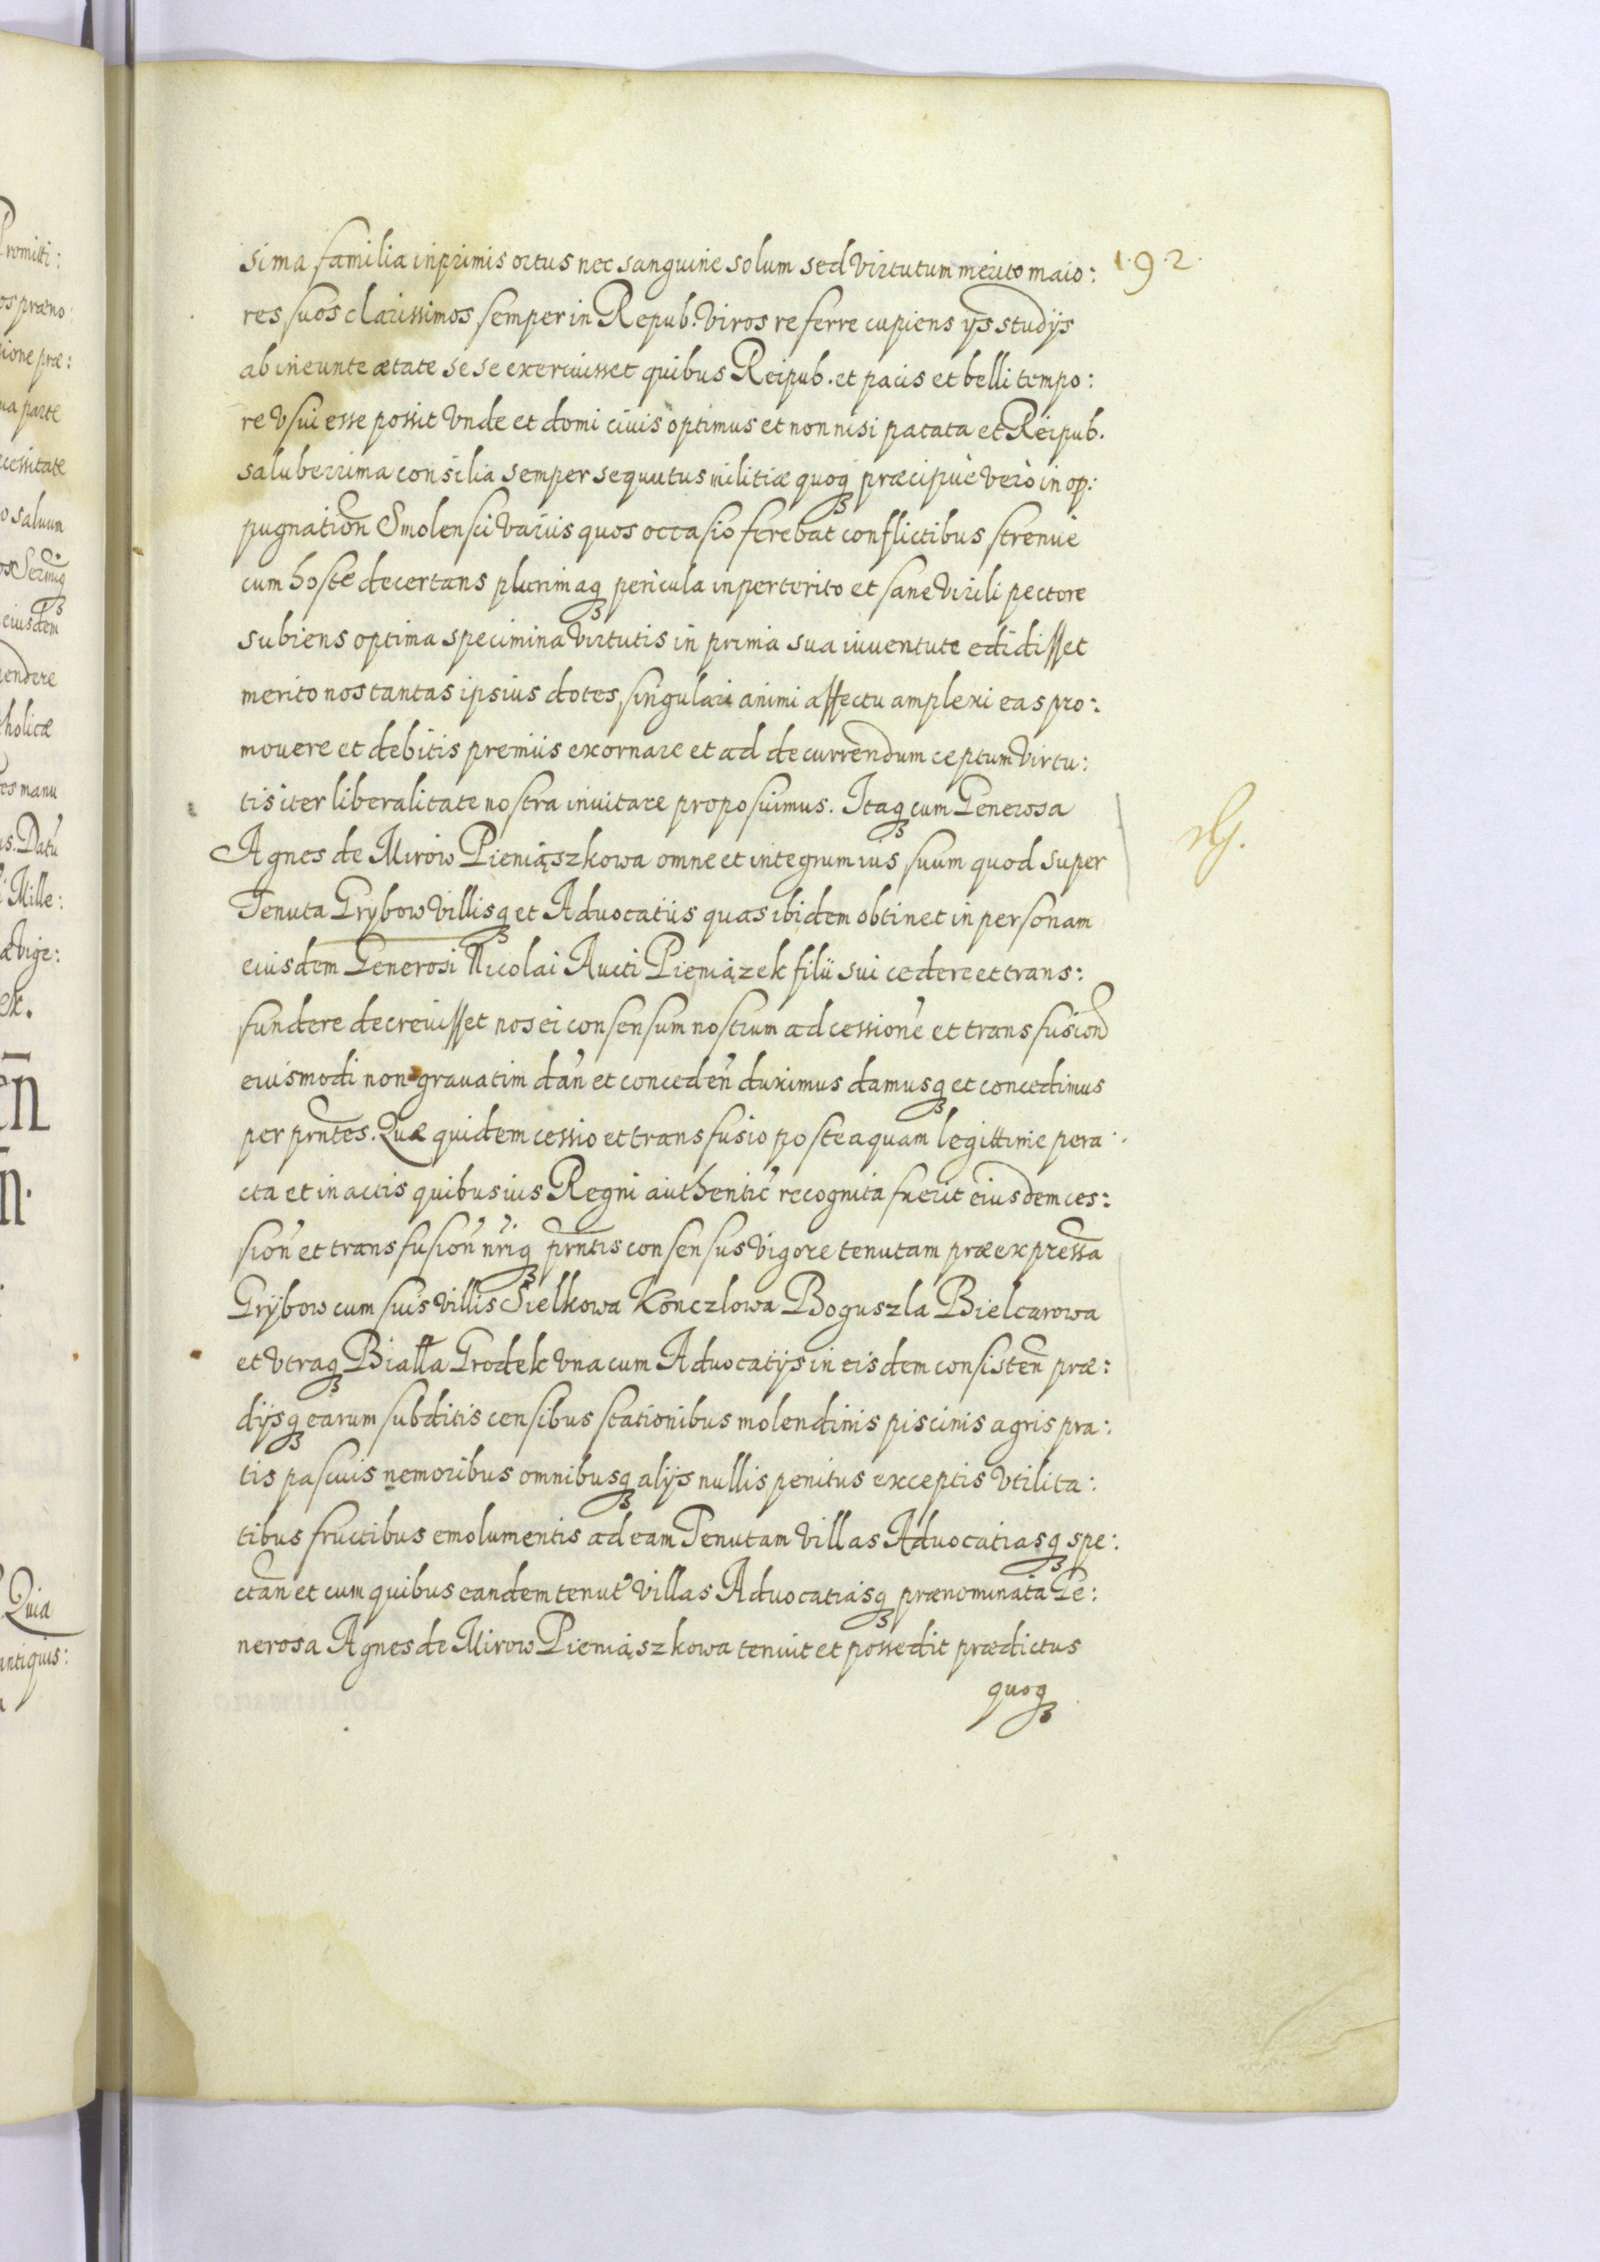 192.
sima familia inprimis ortus nec sanguine solum sed virtutum merito maio:
res suos clarissimos semper in Repub. viros referre cupiens ijs studijs
ab ineunte ætate sese exercuisset quibus Reipub. et pacis et belli tempo:
re vsui esse possit vnde et domi ciuis optimus et non nisi pacata et Reipub.
saluberrima consilia semper sequutus militiæ quoqȝ præcipuè verò in op:
pugnation̄ Smolensci varijs quos occasio ferebat conflictibus strenuè
cum hoste decertans plurimaqȝ pericula inperterito et sane virili pectore
subiens optima specimina virtutis in prima sua iuuentute edidisset
merito nos tantas ipsius dotes singulari animi affectu amplexi eas pro:
mouere et debitis premiis exornare et ad decurrendum ceptum virtu:
tis iter liberalitate nostra inuitare proposuimus. Itaqȝ cum Generosa
Agnes de Mirow Pieniąszkowa omne et integrum ius suum quod super
Tenuta Grybow villisqȝ et Aduocatiis quas ibidem obtinet in personam
eiusdem Generosi Nicolai Aucti Pieniązek filii sui cedere et trans:
fundere decreuisset nos ei consensum nostrum ad cession̄e et transfusion̄
eiusmodi non grauatim dan̄ et conceden̄ duximus damusqȝ et concedimus
per prn̄tes. Quæ quidem cessio et transfusio posteaquam legittime pera:
cta et in actis quibusuis Regni authentic̄ recognita fuerit eiusdem ces:
sion̄ et transfusion̄ nr̄iqȝ prn̄tis consensus vigore tenutam præexpressā
Grybow cum suis villis Sielkowa Konczlowa Boguszla Bielcarowa
et vtraqȝ Bialla Grodek vna cum Aduocatijs in eisdem consisten̄ præ:
dijsqȝ earum subditis censibus stationibus molendinis piscinis agris pra:
tis pascuis nemoribus omnibusqȝ alijs nullis penitus exceptis vtilita:
tibus fructibus emolumentis ad eam Tenutam villas Aduocatiasqȝ spe:
ctan̄ et cum quibus eandem tenut̄ villas Aduocatiasqȝ prænominata Ge:
nerosa Agnes de Mirow Pieniąszkowa tenuit et possedit prædictus
quoqȝ